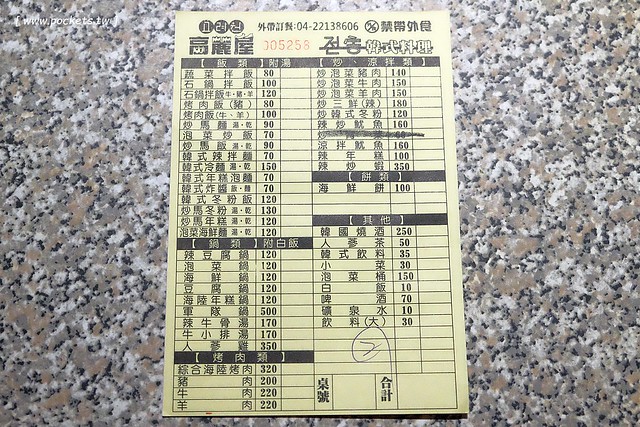 【 www.pockets.tw 】
고려정 外帶訂餐:04-22138606 禁帶外食
高麗屋 005258 전통 韓式料理
【 飯 類 】附湯
蔬菜拌飯 80
石鍋拌飯 100
石鍋拌飯牛、豬、羊 120
烤肉飯(豬) 80
烤肉飯(牛、羊) 100
炒馬麵湯、乾 90
泡菜炒飯 70
炒馬飯湯、乾 90
韓式辣拌麵 70
韓式冷麵湯、乾 150
韓式年糕泡麵 70
韓式炸醬飯、麵 70
韓式冬粉飯 120
炒馬冬粉湯、乾 130
炒馬年糕湯、乾 120
泡菜海鮮麵湯、乾 120
【 鍋 類 】附白飯
辣豆腐鍋 120
泡菜鍋 120
海鮮鍋 120
豆腐鍋 120
海陸年糕鍋 120
軍隊鍋 500
辣牛骨湯 170
牛小排湯 170
人蔘雞 350
【 烤 肉 類 】
綜合海陸烤肉 320
豬肉 200
牛肉 220
羊肉 220
【 炒、涼拌類 】
炒泡菜豬肉 140
炒泡菜牛肉 150
炒泡菜羊肉 150
炒三鮮(辣) 180
炒韓式冬粉 120
辣炒魷魚 160
涼拌魷魚 160
辣年糕 100
辣炒蝦 350
【 餅 類 】
海鮮餅 100
【 其 他 】
韓國燒酒 250
人蔘茶 50
韓式飲料 35
小菜 30
泡菜桶 150
白飯 10
啤酒 70
礦泉水 10
飲料(大) 30
桌號
合計